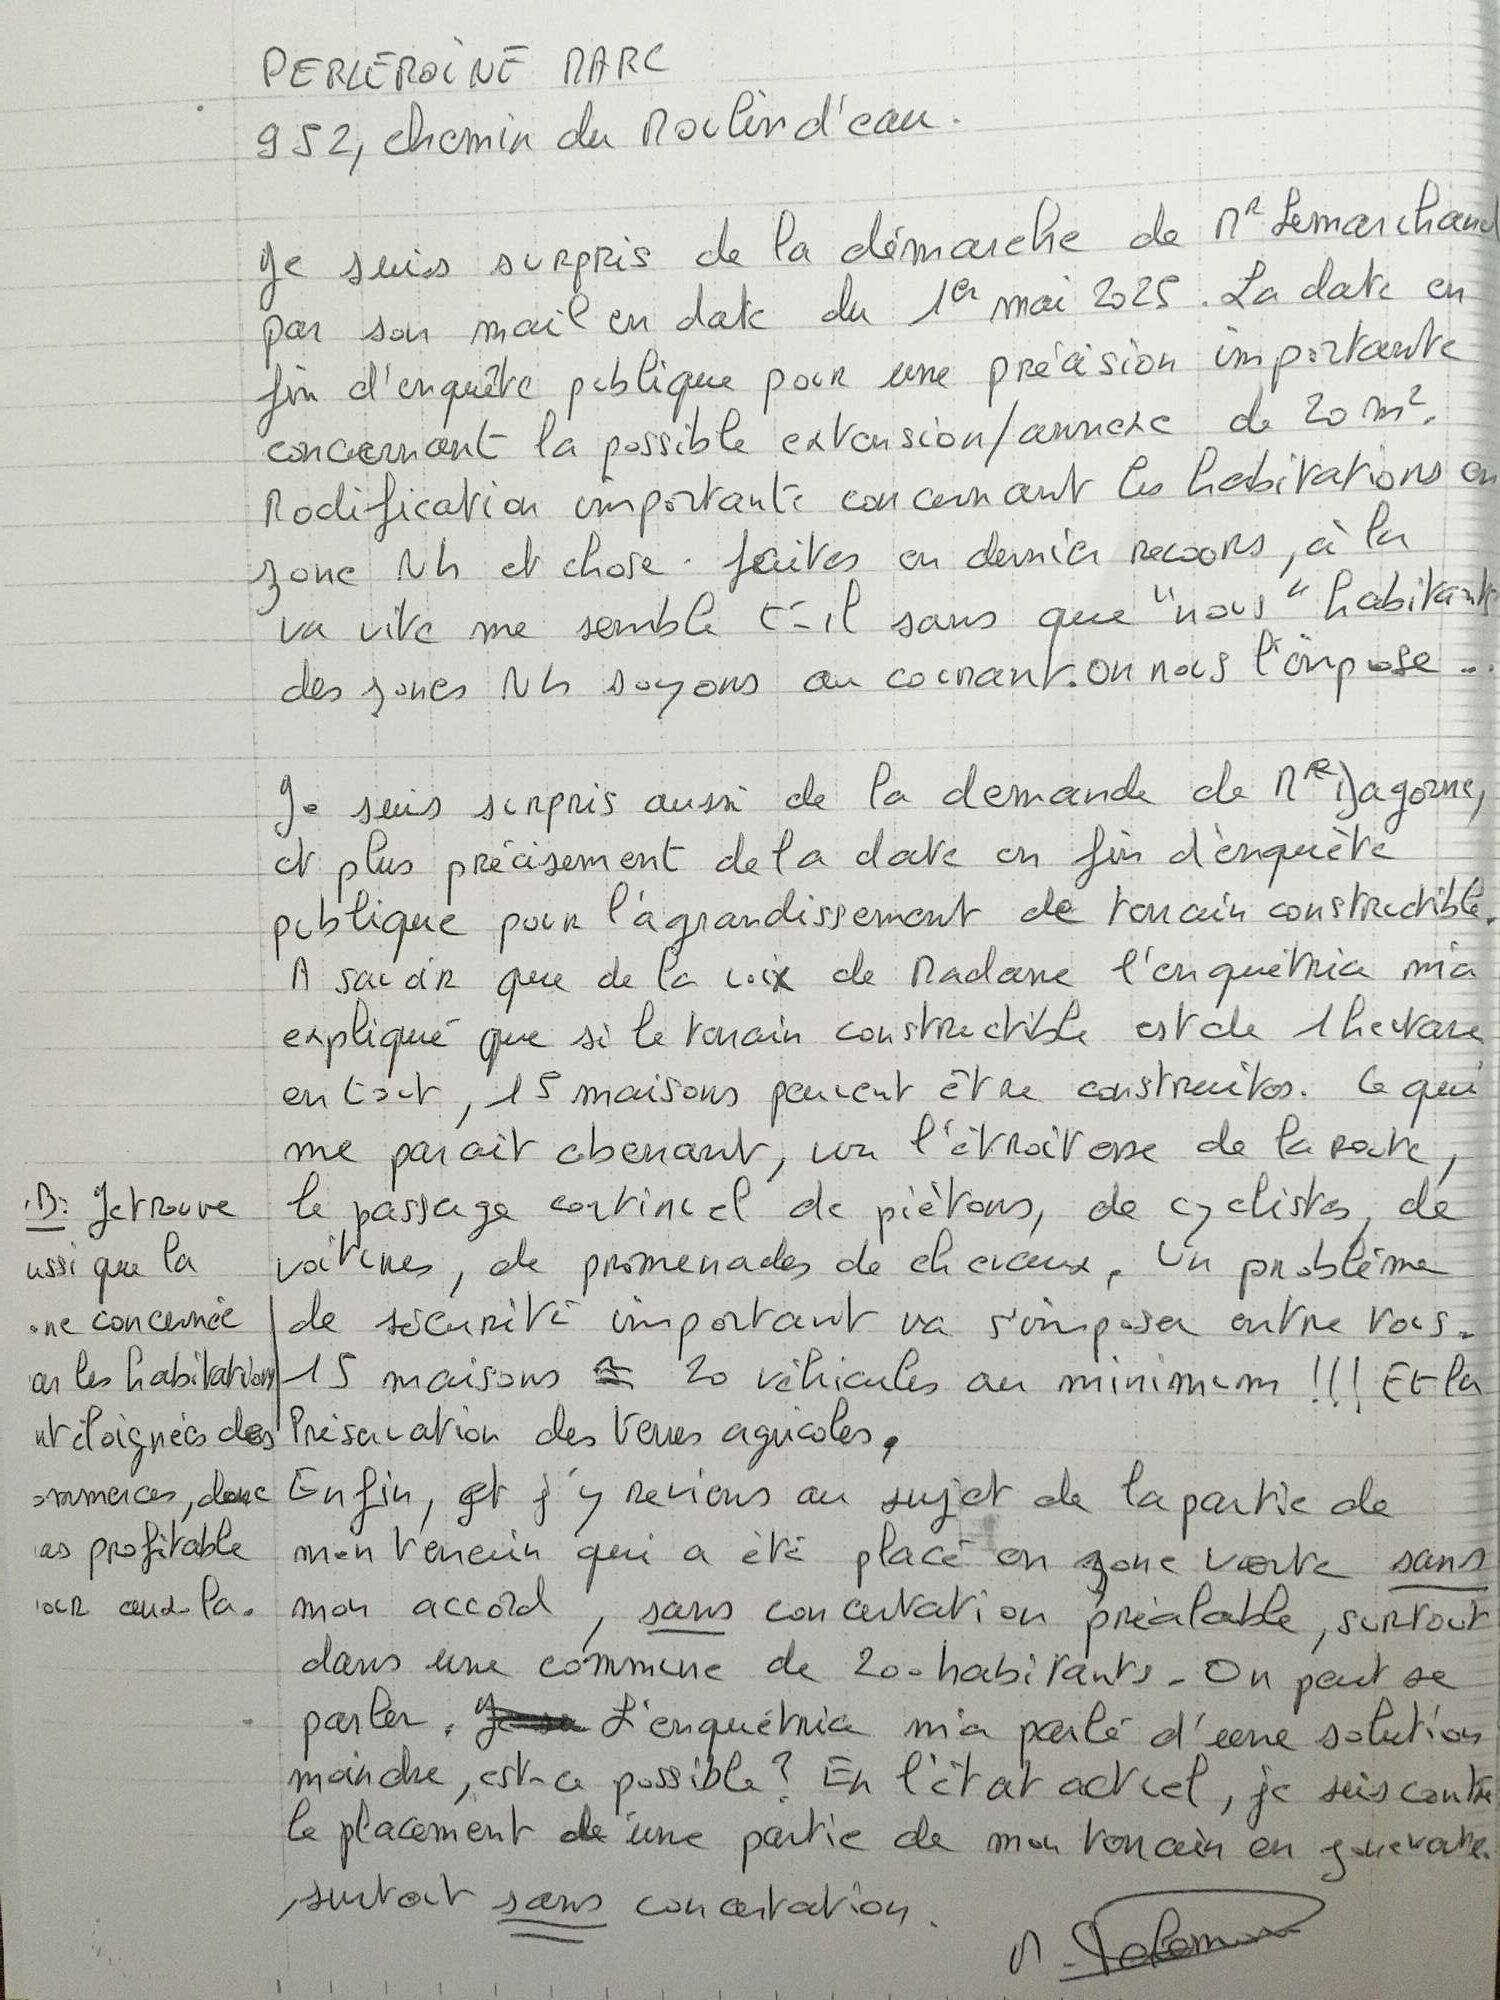 PERLEROINE MARC
952, chemin du Moulin d'eau.
Je suis surpris de la démarche de Mr Lemarchand
par son mail en date du 1er mai 2025. La date en
fin d'enquête publique pour une précision importante
concernant la possible extension/annexe de 20 m².
Modification importante concernant les habitations en
zone Nh et chose faites en dernier recours, à la
va vite me semble t-il sans que "nous" habitants
des zones Nh soyons au courant. On nous l'impose ...
Je suis surpris aussi de la demande de Mr Dagorne,
et plus précisement de la date en fin d'enquête
publique pour l'agrandissement de terrain constructible.
A savoir que de la voix de Madame l'enquêtrice m'a
expliqué que si le terrain constructible est de 1 hectare
en tout, 15 maisons peuvent être construites. Ce qui
me parait aberrant, vu l'étroitesse de la route,
le passage continuel de piétons, de cyclistes, de
voitures, de promenades de chevaux. Un problème
de sécurité important va s'imposer entre tous.
15 maisons ≈ 20 véhicules au minimum !!! Et la
Préservation des terres agricoles.
Enfin, et j'y reviens au sujet de la partie de
mon terrain qui a été placé en zone verte sans
mon accord, sans concertation préalable, surtout
dans une commune de 200 habitants. On peut se
parler. L'enquêtrice m'a parlé d'une solution
moindre, est-ce possible? En l'état actuel, je suis contre
le placement de une partie de mon terrain en zone verte.
surtout sans concertation.
.B: Je trouve
ussi que la
ne concernée
ar les habitations
nt éloignées des
ommerces, donc
as profitable
our cela.
M.